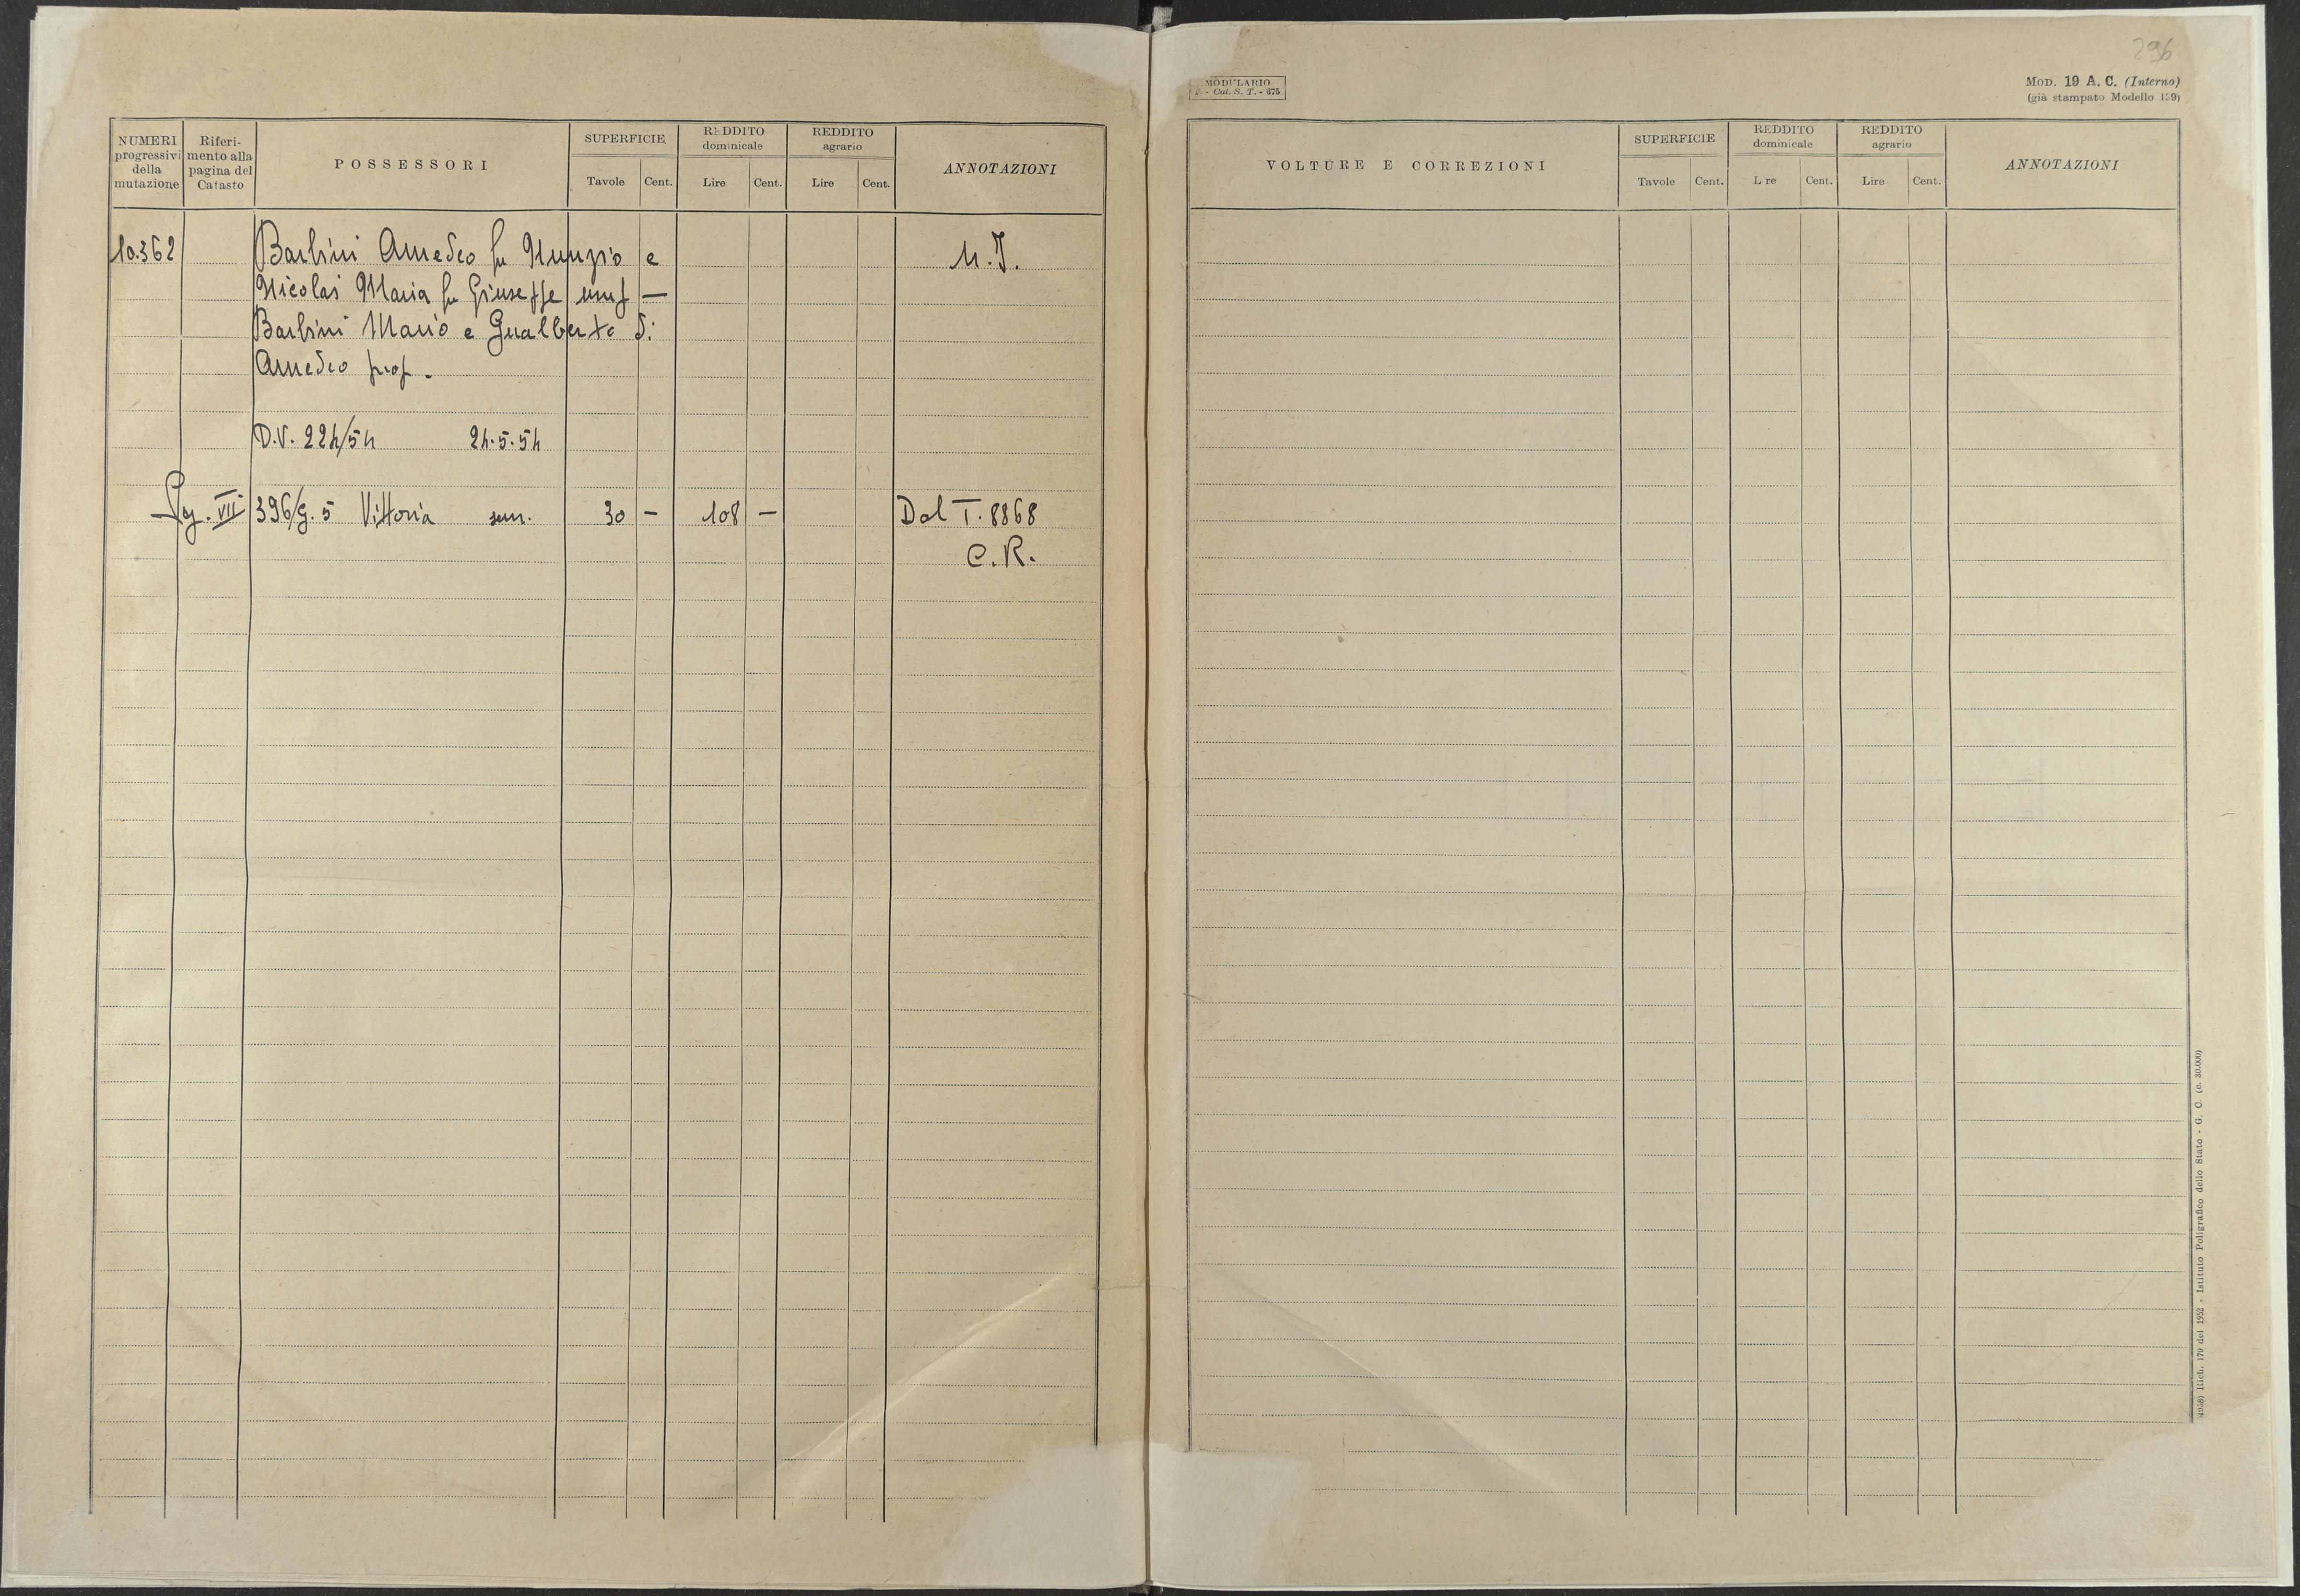 296
MODULARIO
F. - Cat. S. T. - 675
MOD. 19 A. C. (Interno)
(già stampato Modello 129)
NUMERI progressivi della mutazione
Riferimento alla pagina del Catasto
POSSESSORI
SUPERFICIE
Tavole Cent.
REDDITO dominicale
Lire Cent.
REDDITO agrario
Lire Cent.
ANNOTAZIONI
10.362 Barbini Amedeo fu Nunzio e
Nicolai Maria fu Giuseppe usuf —
Barbini Mario e Gualberto di
Amedeo prop.
D.V. 224/54 24.5.54
VII 396/g. 5 Vittoria sem. 30 — 108 — Dal T. 8868
C.R.
VOLTURE E CORREZIONI
SUPERFICIE
Tavole Cent.
REDDITO dominicale
L re Cent.
REDDITO agrario
Lire Cent.
ANNOTAZIONI
Rich. 179 del 1952 - Istituto Poligrafico dello Stato - G. C. (c. 30.000)